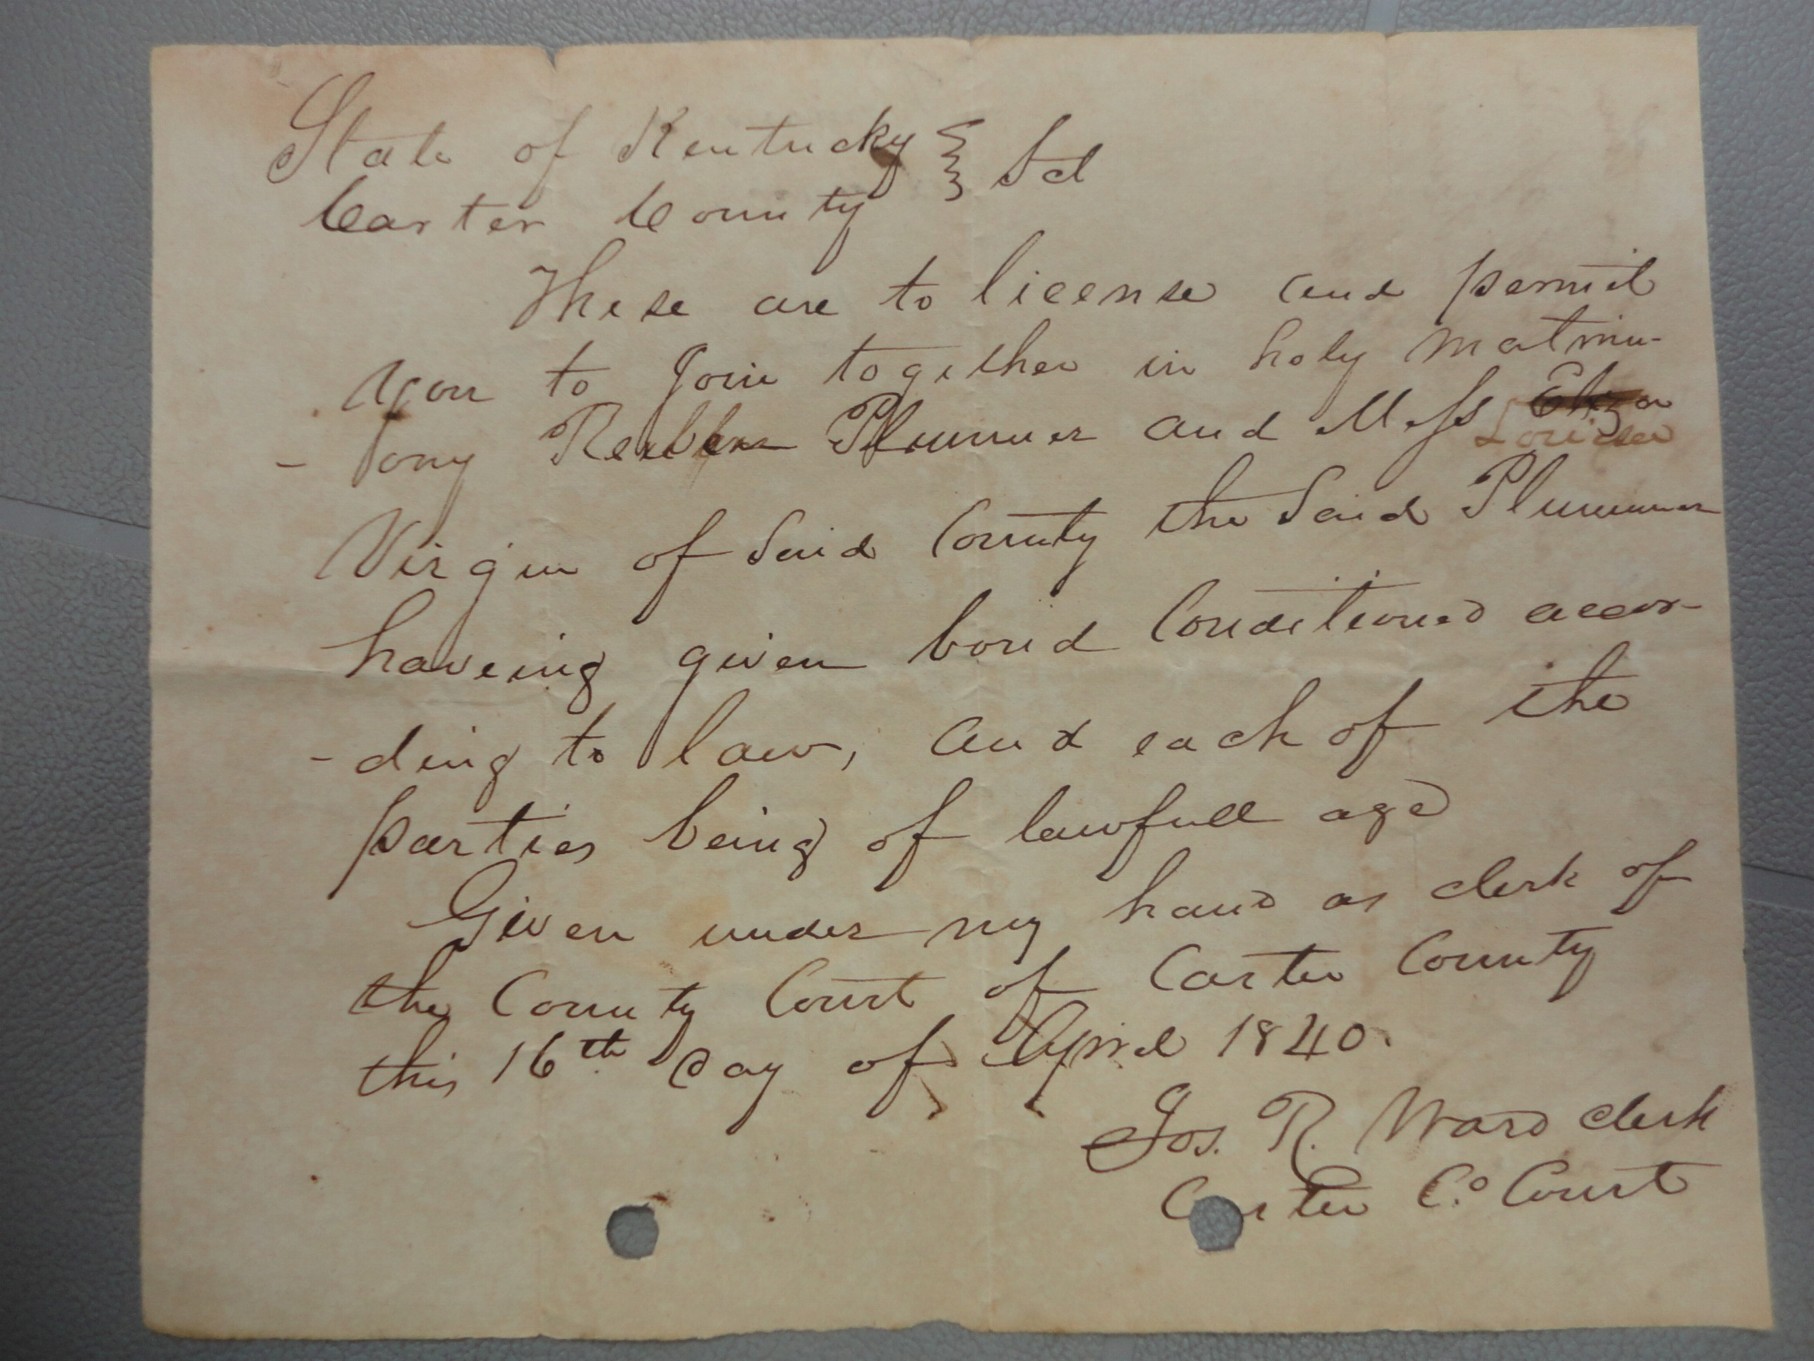 State of Kentucky } Sct
Carter County
These are to license and permit
you to Join together in holy matrimo-
- ony Reuben Plummer and Miss Eliza Louisea
Virgin of said County the said Plummer
haveing given bond Conditioned accor-
- ding to law, and each of the
parties being of lawfull age
Given under my hand as clerk of
the County Court of Carter County
this 16th day of April 1840.
Jos. R. Ward clerk
Carter Co. Court